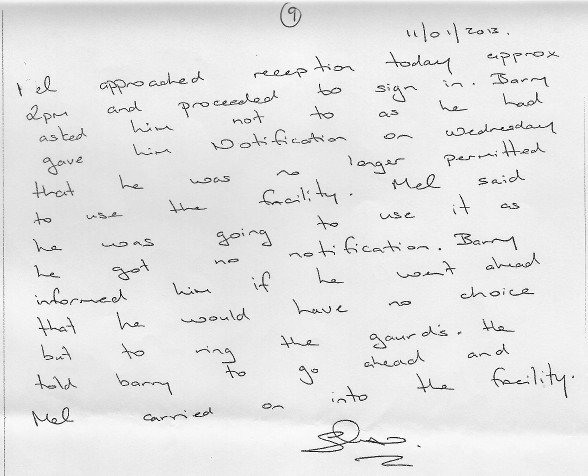 9
11/01/2013.
Mel approached reception today approx
2pm and proceeded to sign in. Barry
asked him not to as he had
gave him Notification on Wednesday
that he was no longer permitted
to use the facility. Mel said
he was going to use it as
he got no notification. Barry
informed him if he went ahead
that he would have no choice
but to ring the gaurds. He
told barry to go ahead and
Mel carried on into the facility.